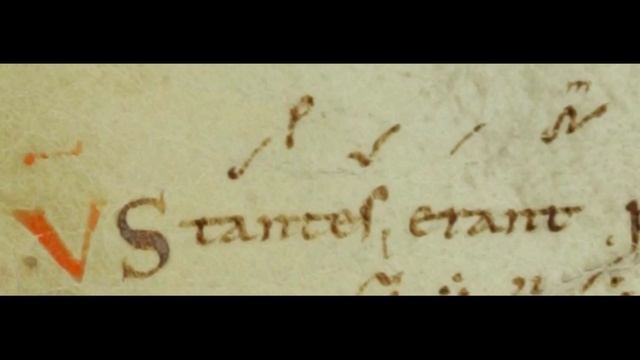 V Stantes erant